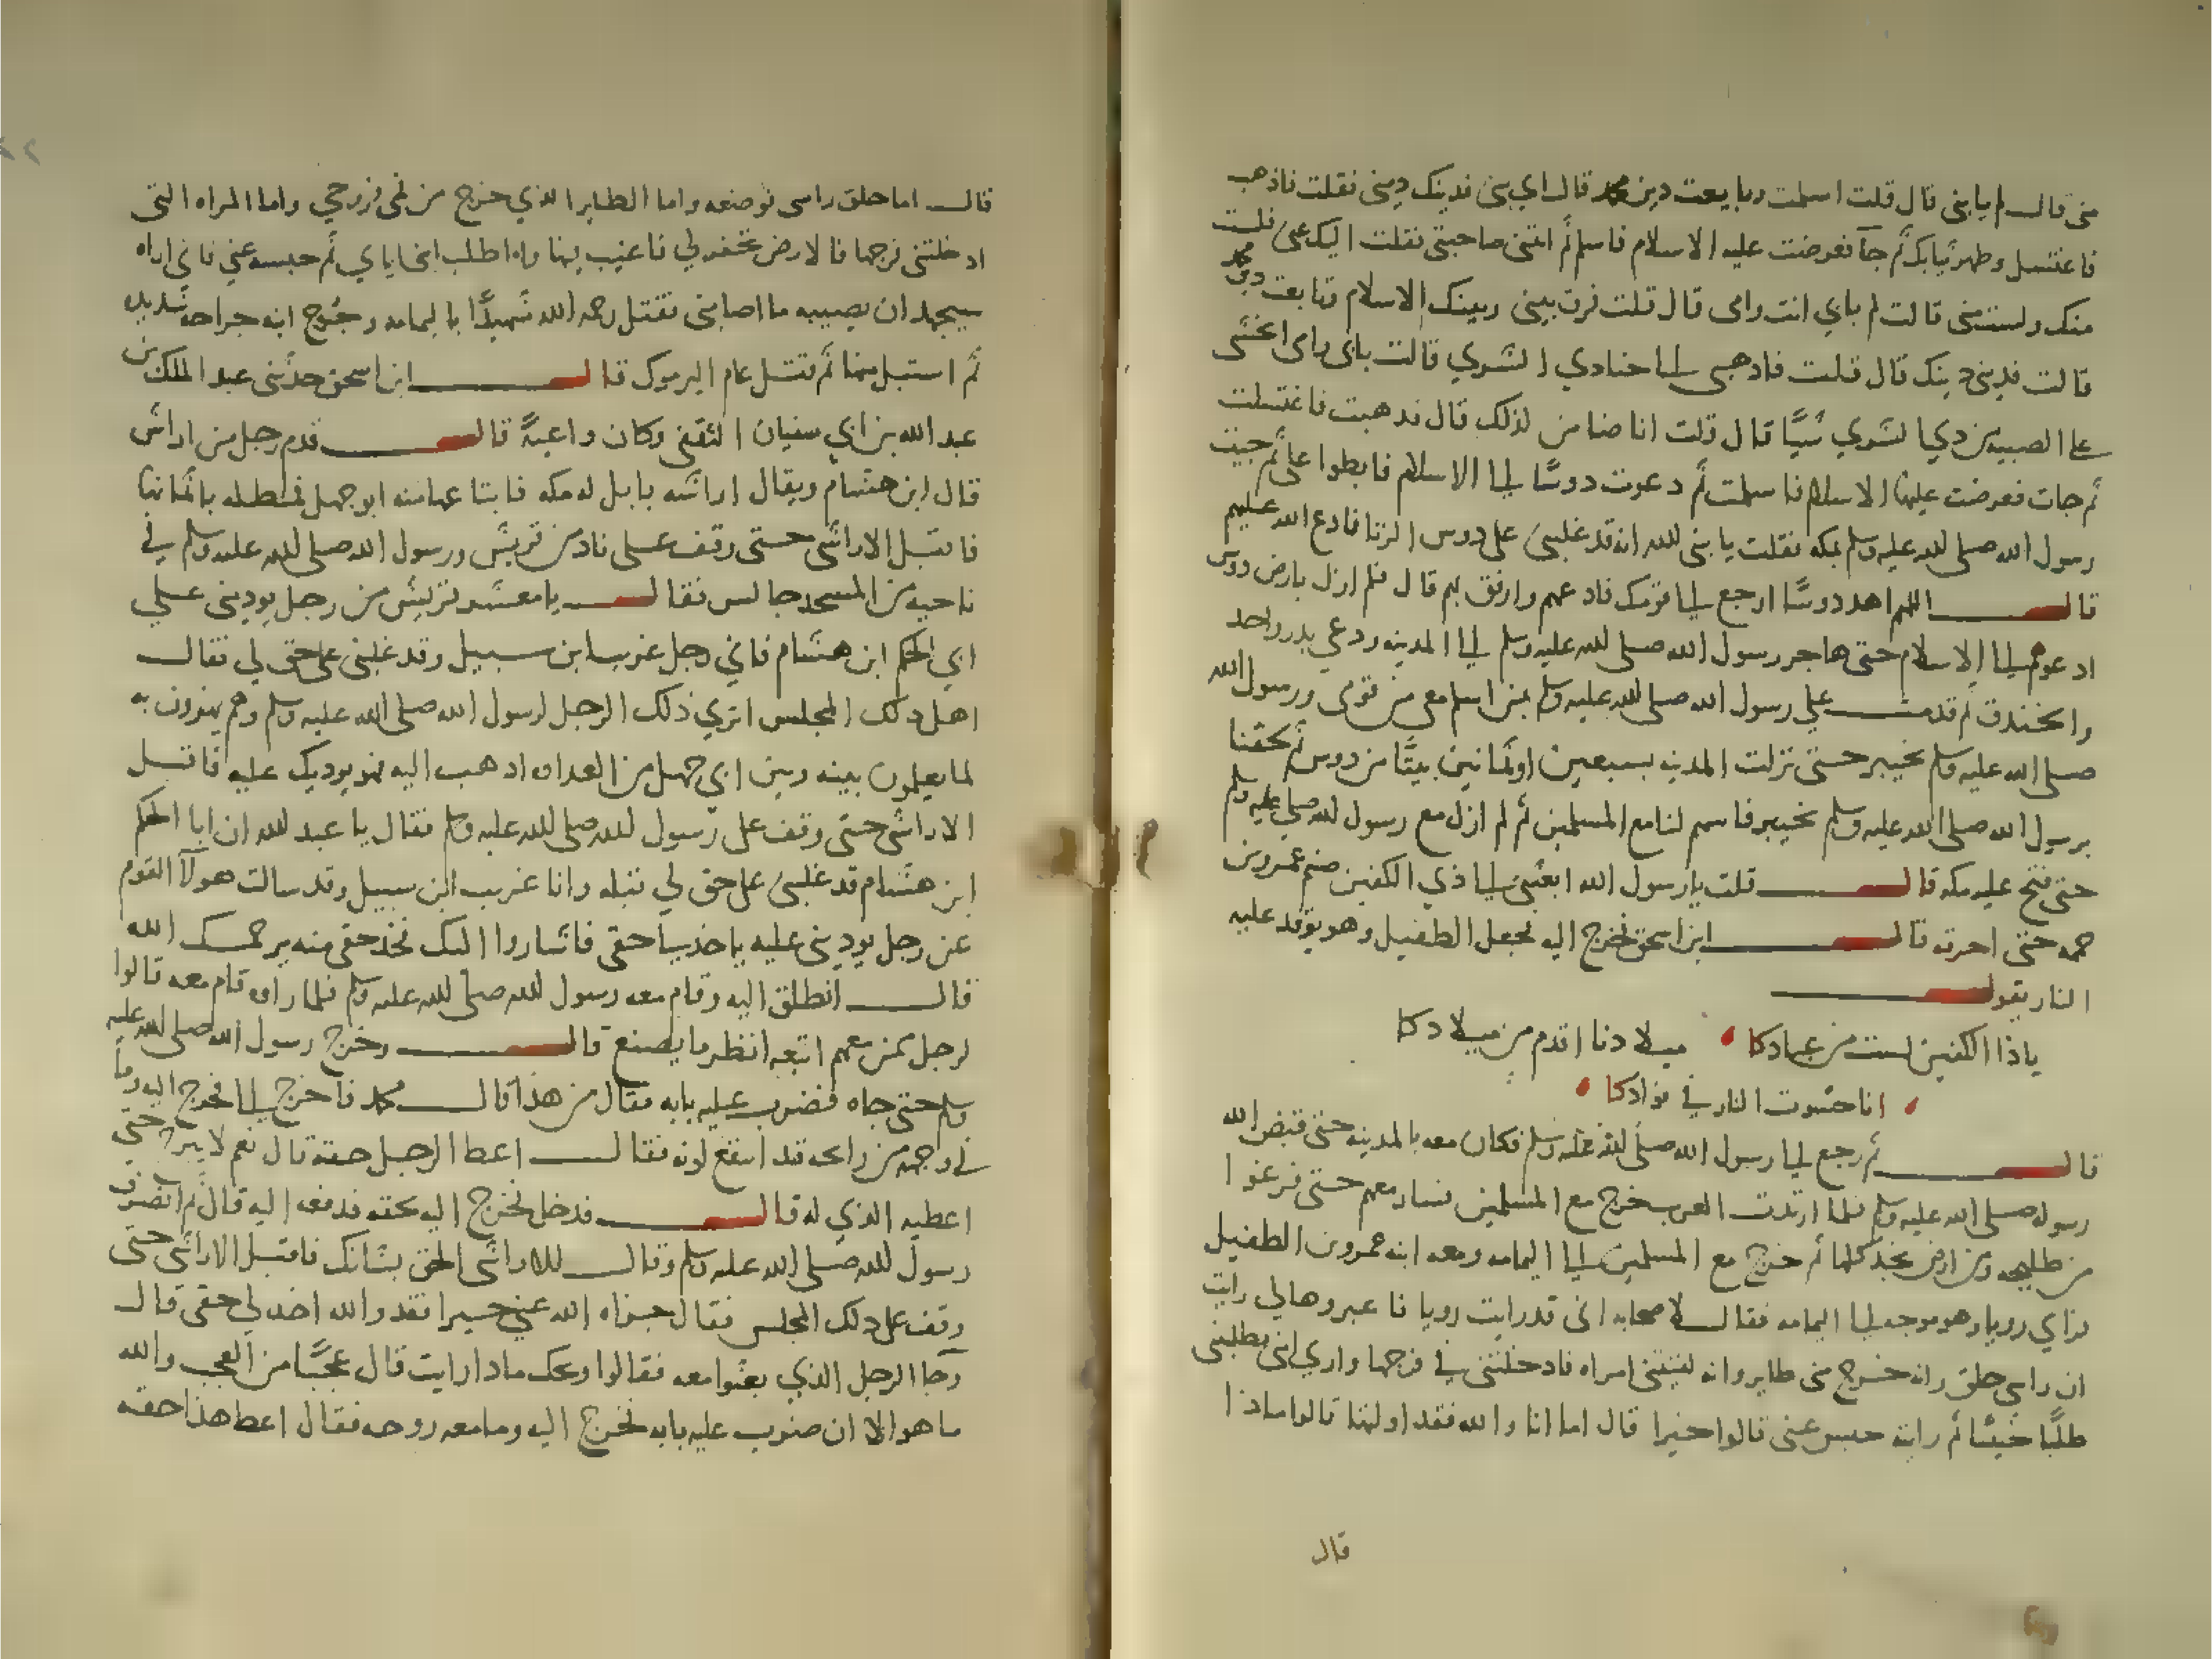 منى قال لم يا بنى قال قلت اسلمت وبايعت دين محمد قال اي بنى فدينك دينى فقلت فاذهب
فاغتسل وطهر ثيابك ثم جآ فعرضت عليه الاسلام فاسلم ثم اتتنى صاحبتى فقلت اليك عنى فلست
منك ولست منى قالت لم بابي انت وامى قال قلت فرق بينى وبينك الاسلام تابعت دين محمد
قالت فدينى دينك قال قلت فاذهبى الى حنا ذي الشري قالت بابى وامى اتخشى
على الصبيه من ذي الشري شيًا قال قلت انا ضامن لذلك قال فذهبت فاغتسلت
ثم جات فعرضت عليها الاسلام فاسلمت ثم دعوت دوسًا الى الاسلام فابطوا على ثم جيت
رسول الله صلى الله عليه وسلم بمكه فقلت يا نبى الله انه قد غلبنى على دوس الزنا فادع الله عليهم
قال اللهم اهد دوسًا ارجع الى قومك فادعهم وارفق بهم قال فلم ازل بارض دوس
ادعوهم الى الاسلام حتى هاجر رسول الله صلى الله عليه وسلم الى المدينه ومضى بدر واحد
والخندق ثم قدمت على رسول الله صلى الله عليه وسلم بمن اسلم معى من قومى ورسول الله
صلى الله عليه وسلم بخيبر حتى نزلت المدينه بسبعين او ثمانين بيتًا من دوس ثم لحقنا
برسول الله صلى الله عليه وسلم بخيبر فاسهم لنا مع المسلمين ثم لم ازل مع رسول الله صلى عليه وسلم
حتى فتح عليه مكه قال قلت يا رسول الله ابعثنى الى ذي الكفين صنم عمرو بن
حممه حتى احرقه قال ابن اسحق فخرج اليه فجعل الطفيل وهو يوقد عليه
النار يقول
يا ذا الكفين لست من عبادكا ميلادنا اقدم من ميلادكا
انا حشوت النار في فوادكا
قال ثم رجع الى رسول الله صلى الله عليه وسلم فكان معه بالمدينه حتى قبض الله
رسوله صلى الله عليه وسلم فلما ارتدت العرب خرج مع المسلمين فسار معهم حتى فرغوا
من طليحه ومن ارض نجد كلها ثم خرج مع المسلمين الى اليمامه ومعه ابنه عمرو بن الطفيل
فراي رويا وهو موجه الى اليمامه فقال لاصحابه انى قد رايت رويا فاعبروها لي رايت
ان راسى حلق وانه خرج من فمى طاير وانه لقيتنى امراه فادخلتنى في فرجها واري ابنى يطلبنى
طلبًا حثيثًا ثم رايته حبس عنى قالوا خيرا قال اما انا والله فقد اولتها قالوا ماذا
قال
قال اما حلق راسى فوضعه واما الطاير الذي خرج من فمى فروحي واما المراه التى
ادخلتنى فرجها فالارض تحفر لي فاغيب فيها واما طلب ابنى اياي ثم حبسه عني فاني اراه
سيجهد ان يصيبه ما اصابنى فقتل رحمه الله شهيدًا باليمامه وجرح ابنه جراحه شديده
ثم استبل منها ثم قتل عام اليرموك قال ابن اسحق حدثنى عبد الملك بن
عبد الله بن ابي سفيان الثقفى وكان واعيةً قال قدم رجل من اراش
قال ابن هشام ويقال اراشه بابل له مكه فابتاعها منه ابو جهل فمطله باثمانها
فاقبل الاراشى حتى وقف على ناد من قريش ورسول الله صلى الله عليه وسلم في
ناحيه من المسجد جالس فقال يا معشر قريش من رجل يودينى على
ابي الحكم ابن هشام فاني رجل غريب ابن سبيل وقد غلبنى على حق لي فقال
اهل ذلك المجلس اتري ذلك الرجل لرسول الله صلى الله عليه وسلم وهم يهزون به
لما يعلمون بينه وبين ابي جهل من العداوه اذهب اليه فهو يوديك عليه فاقبل
الاراشى حتى وقف على رسول الله صلى الله عليه وسلم فقال يا عبد الله ان ابا الحكم
ابن هشام قد غلبنى على حق لي قبله وانا غريب ابن سبيل وقد سالت هولآ القوم
عن رجل يودينى عليه ياخذ لي حقى فاشاروا اليك فخذ حقى منه يرحمك الله
قال انطلق اليه وقام معه رسول الله صلى الله عليه وسلم فلما راوه قام معه قالوا
لرجل ممن معهم اتبعه انظر ما يصنع قال وخرج رسول الله صلى الله عليه
وسلم حتى جاه فضرب عليه بابه فقال من هذا قال محمد فاخرج الى فخرج اليه وما
في وجهه من رائحه قد انتقع لونه فقال اعط الرجل حقه قال نعم لا يبرح حتى
اعطيه الذي له قال فدخل فخرج اليه بحقه فدفعه اليه قال ثم انصرف
رسول الله صلى الله عليه وسلم وقال للاراشى الحق بشانك فاقبل الاراشى حتى
وقف على ذلك المجلس فقال جزاه الله عني خيرا فقد والله اخذ لي حقى قال
وجآ الرجل الذي بعثوا معه فقالوا ويحك ماذا رايت قال عجبًا من العجب والله
ما هو الا ان ضرب عليه بابه فخرج اليه وما معه روحه فقال اعط هذا حقه